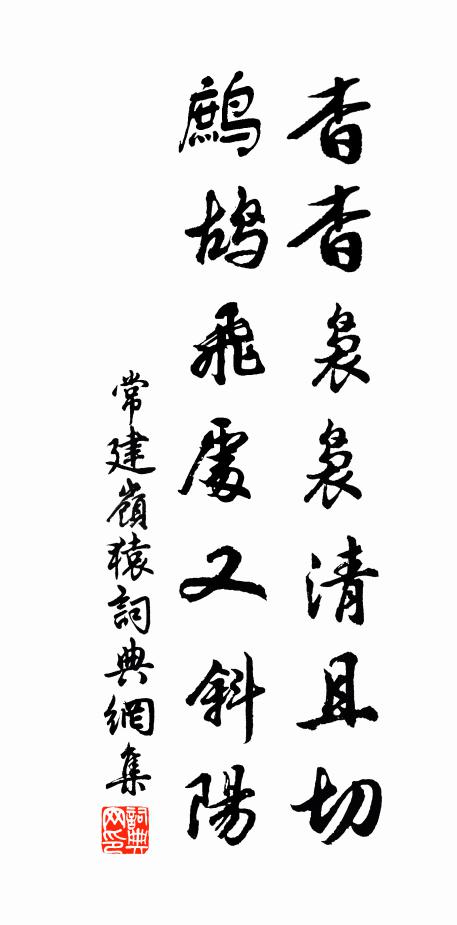 杳杳裊裊清且切
鷓鴣飛處又斜陽
常建嶺猿詞典網集
詞典网印